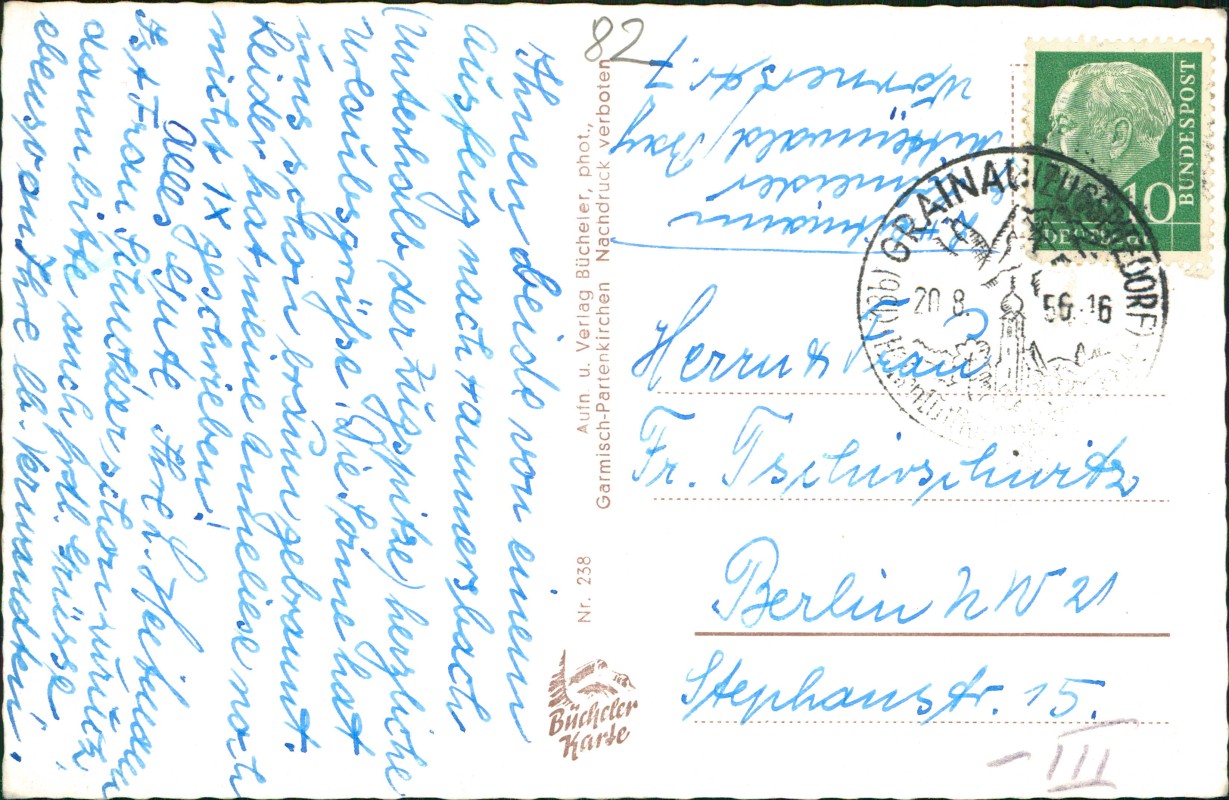 Ihnen beide von einem
Ausflug nach Hammersbach
(Unterhalb der Zugspitze) herzliche
Urlaubsgrüße. Die Sonne hat
uns schon braungebrannt.
Leider hat meine Anneliese noch
nicht 1x geschrieben!
Alles Gute Ihre
Ist Frau schon zurück,
dann bitte auch hdl. Grüsse
ebenso an Ihre lb. Verwandten.
82
Mittenwald/Bay
Wörnerstr. 7
BUNDESPOST
10
GRAINAU (ZUGSPITZDORF)
20.8.56.-16
Herrn & Frau
Fr. Tschirschwitz
Berlin NW 21
Stephanstr. 15.
- III
Aufn u. Verlag Bücheler, phot.,
Garmisch-Partenkirchen Nachdruck verboten
Nr. 238
Bücheler
Karte